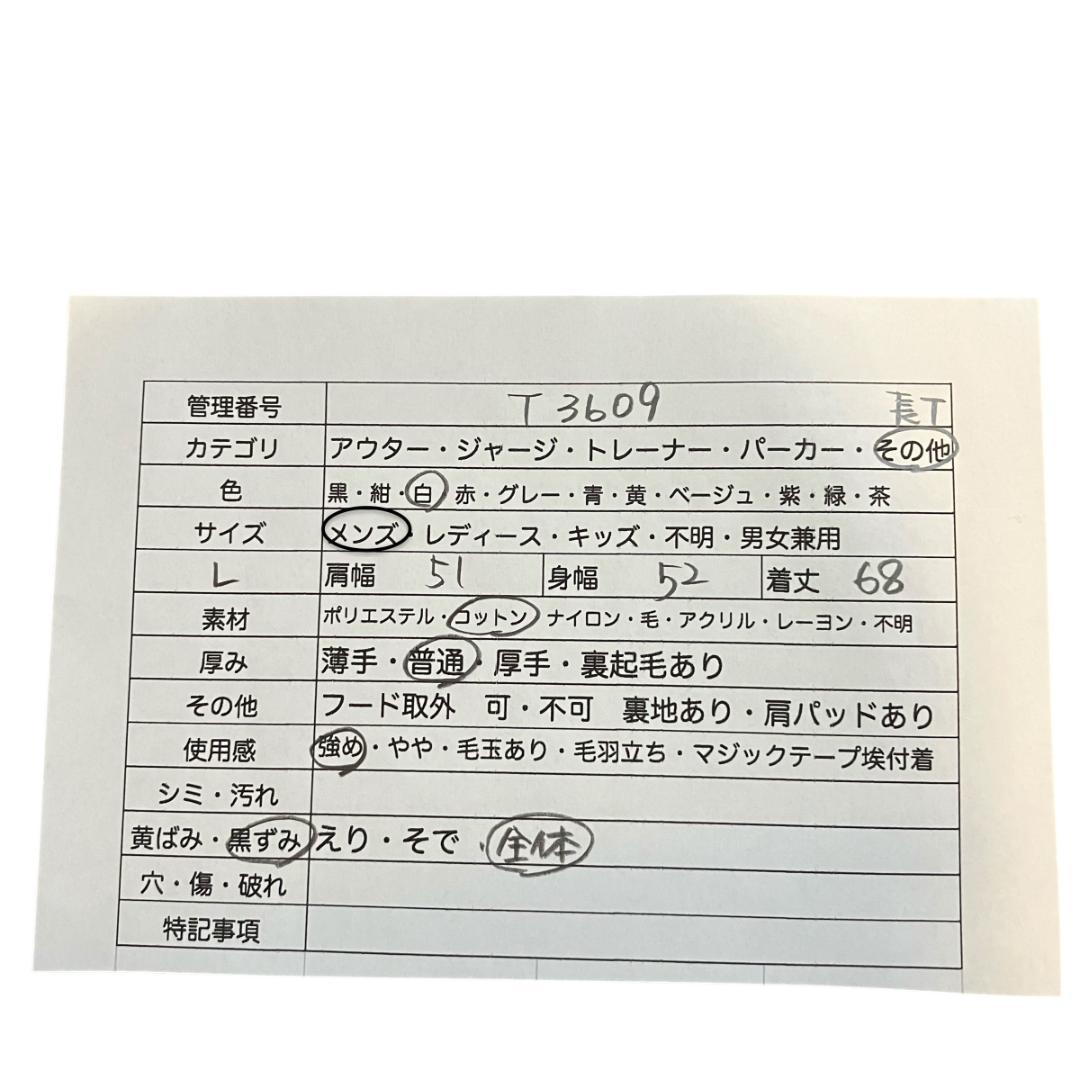 管理番号 T3609 長T
カテゴリ アウター・ジャージ・トレーナー・パーカー・その他
色 黒・紺・白・赤・グレー・青・黄・ベージュ・紫・緑・茶
サイズ メンズ・レディース・キッズ・不明・男女兼用
L 肩幅 51 身幅 52 着丈 68
素材 ポリエステル・コットン ナイロン・毛・アクリル・レーヨン・不明
厚み 薄手・普通・厚手・裏起毛あり
その他 フード取外 可・不可 裏地あり・肩パッドあり
使用感 強め・やや・毛玉あり・毛羽立ち・マジックテープ埃付着
シミ・汚れ
黄ばみ・黒ずみ えり・そで・全体
穴・傷・破れ
特記事項